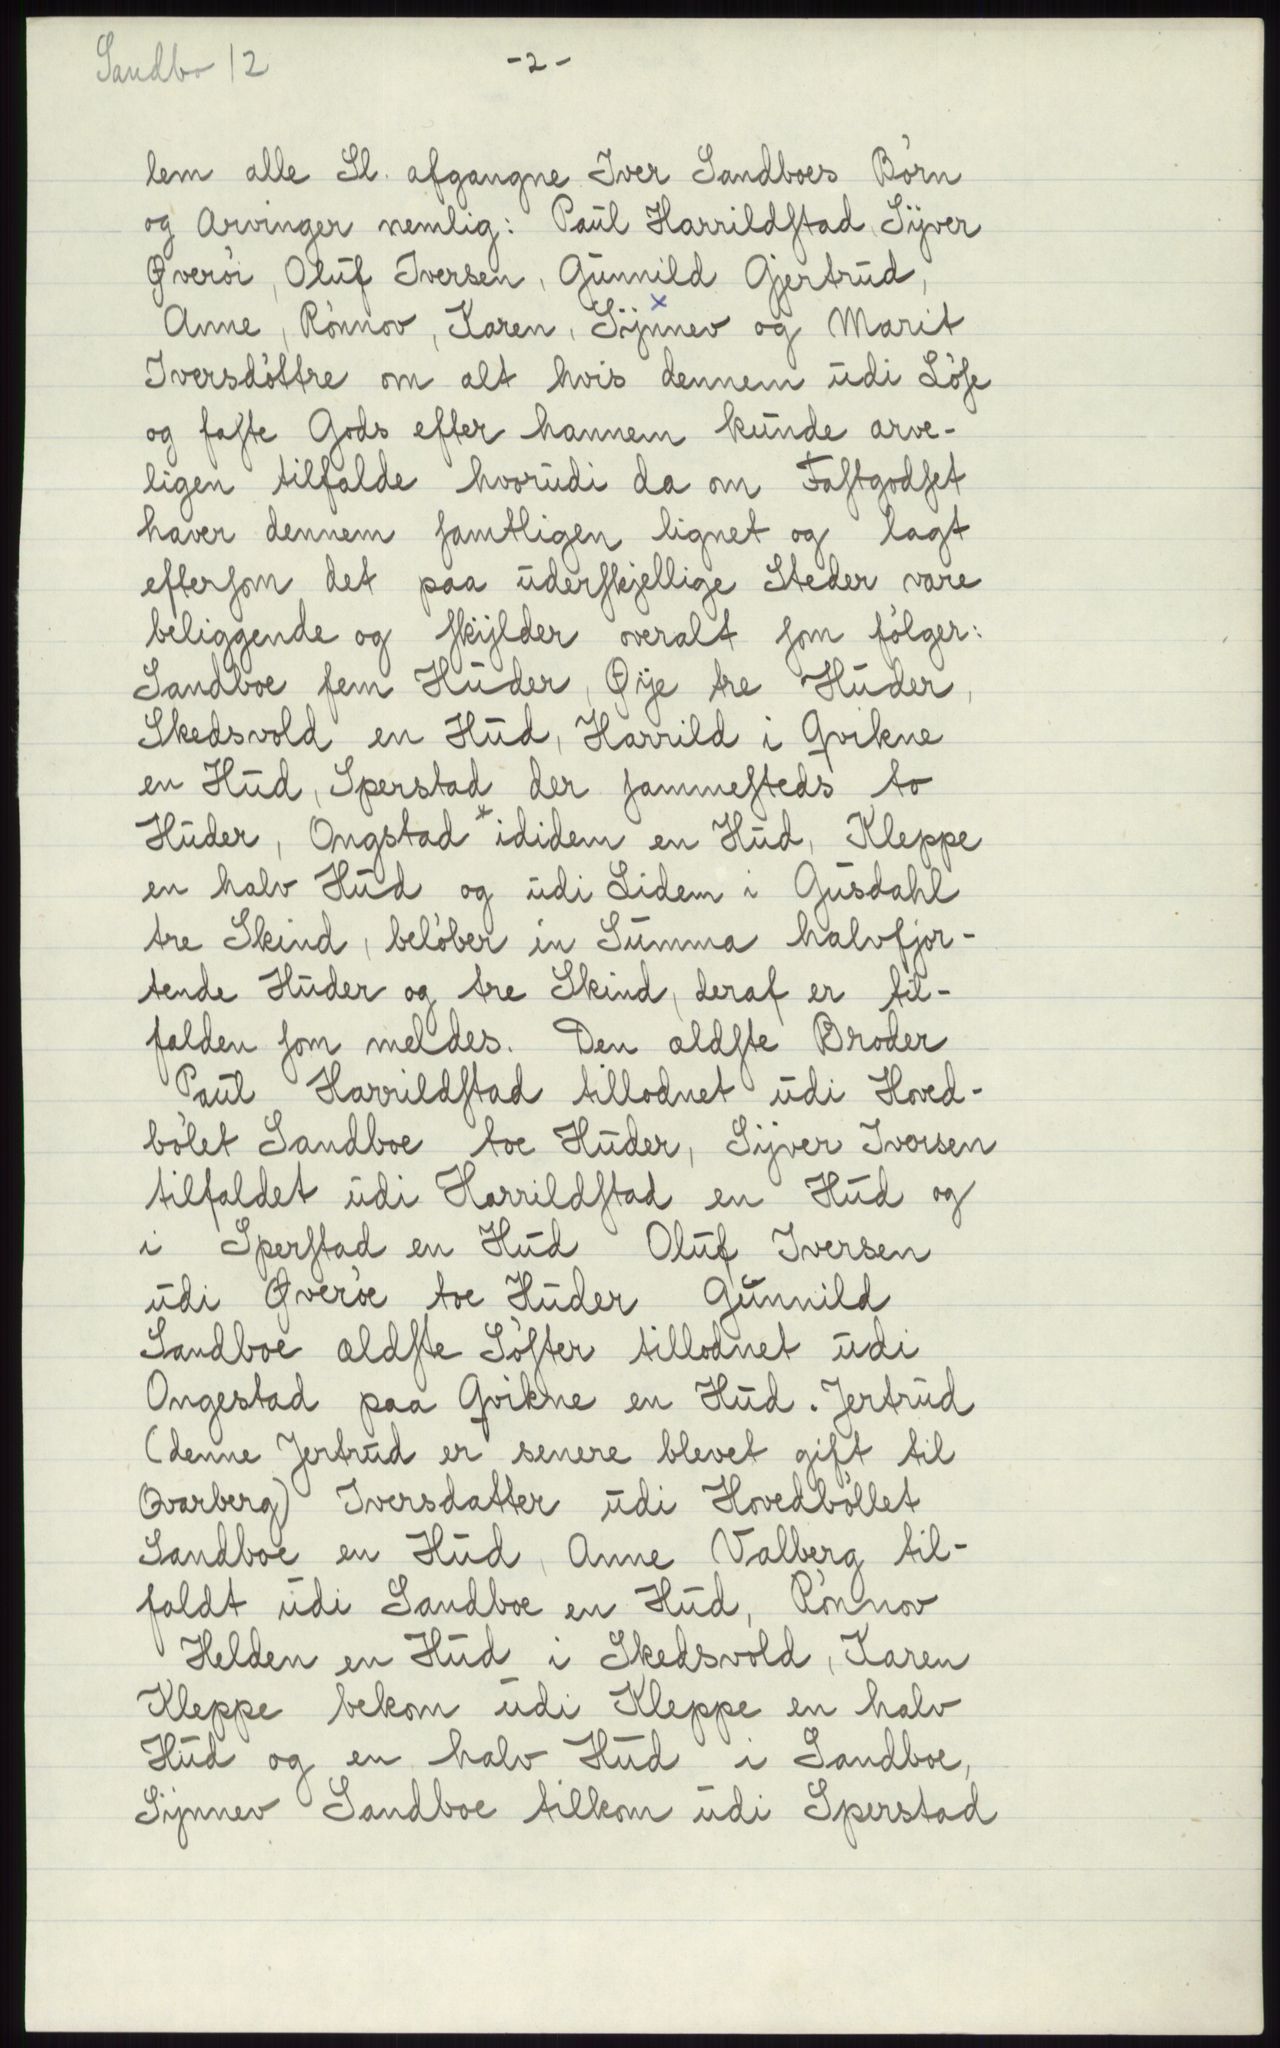 Sandbo 12
-2-
lem alle Sl. afgangne Iver Sandboes Børn
og Arvinger nemlig: Paul Harrildstad, Sÿver
Øverøi, Oluf Iversen, Gunnild Gjertrud,
Anne, Rønnov, Karen, Sÿnnev x og Marit
Iversdøttre om alt hvis dennem udi Løse
og faste Gods efter hannem kunde arve-
ligen tilfalde hvorudi da om Fastgodset
haver dennem samtligen lignet og lagt
eftersom det paa uderskjellige Steder vare
beliggende og skÿlder overalt som følger:
Sandboe fem Huder, Øÿe tre Huder,
Skedsvold en Hud, Harrild i Qvikne
en Hud, Sperstad der sammesteds to
Huder, Ongstad x ididem en Hud, Kleppe
en halv Hud og udi Lidem i Gusdahl
tre Skind, beløber in Summa halvfjor-
tende Huder og tre Skind, deraf er til-
falden som meldes. Den ældste Broder
Paul Harrildstad tillodnet udi Hoved-
bølet Sandboe toe Huder, Sÿver Iversen
tilfaldet udi Harrildstad en Hud og
i Sperstad en Hud Oluf Iversen
udi Øverøe toe Huder Gunnild
Sandboe ældste Søster tillodnet udi
Ongestad paa Qvikne en Hud. Jertrud
(denne Jertrud er senere blevet gift til
Qvarberg) Iversdatter udi Hovedbøllet
Sandboe en Hud, Anne Valberg til-
faldt udi Sandboe en Hud, Rønnov
Helden en Hud i Skedsvold, Karen
Kleppe bekom udi Kleppe en halv
Hud og en halv Hud i Sandboe,
Sÿnnev Sandboe tilkom udi Sperstad